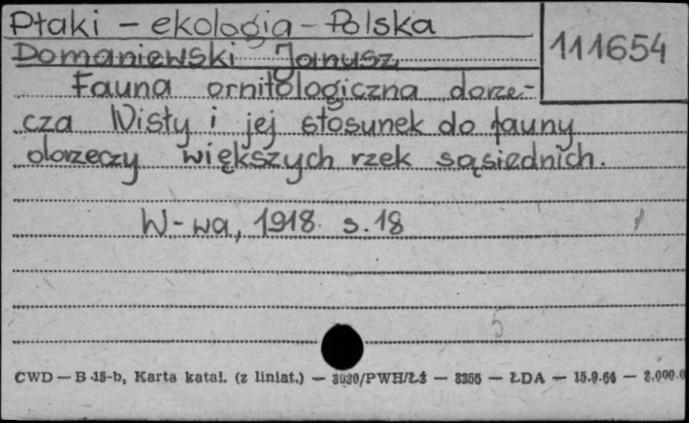 Ptaki - ekologia - Polska
111654
Domaniewski Janusz
Fauna ornitologiczna dorze-
cza Wisły i jej stosunek do fauny
dorzeczy większych rzek sąsiednich.
W-wa, 1918 s. 18
5
CWD — B-15-b, Karta katal. (z liniat.) — 3020/PWH/Łż — 3256 — ŁDA — 15.9.64 — 2.000.0